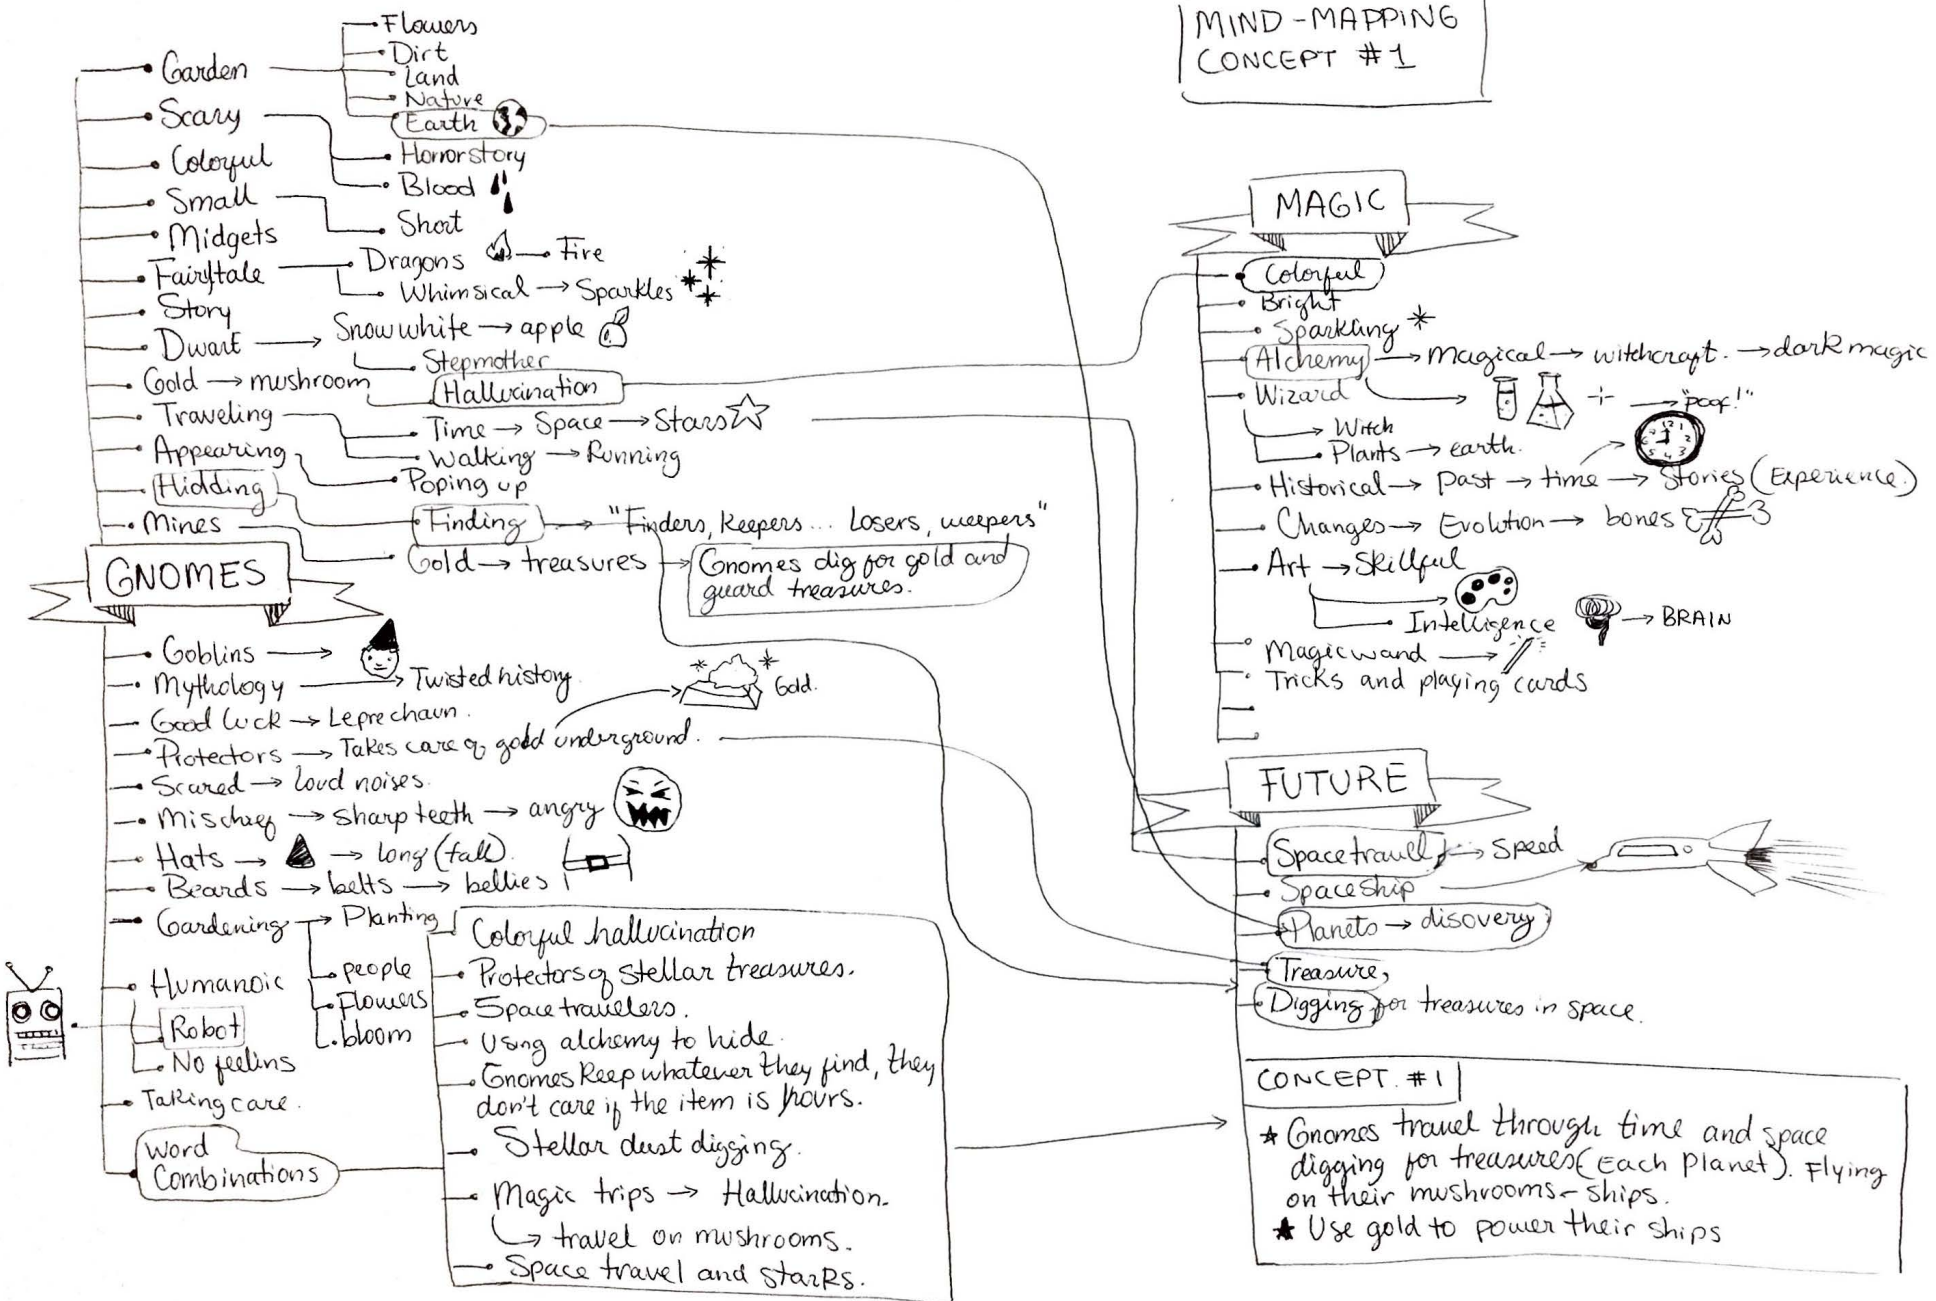 MIND-MAPPING
CONCEPT #1
Garden
Flowers
Dirt
Land
Nature
Earth
Scary
Horrorstory
Blood
Colorful
Small
Short
Midgets
Fairytale
Dragons
Fire
Whimsical → Sparkles
Story
Dwarf → Snowwhite → apple
Stepmother
Gold → mushroom
Hallucination
Traveling
Time → Space → Stars
Walking → Running
Appearing
Poping up
Hidding
Finding → "Finders, Keepers... Losers, weepers"
Mines
Gold → treasures → Gnomes dig for gold and
guard treasures.
GNOMES
Goblins →
Mythology → Twisted history
Good luck → Leprechaun.
Protectors → Takes care of gold underground.
Gold.
Scared → loud noises.
Mischief → sharp teeth → angry
Hats → → long (tall).
Beards → belts → bellies
Gardening → Planting
people
Flowers
bloom
Humanoic
Robot
No feelins
Taking care.
Word
Combinations
Colorful hallucination
Protectors of stellar treasures.
Space travelers.
Using alchemy to hide.
Gnomes Keep whatever they find, they
don't care if the item is yours.
Stellar dust digging.
Magic trips → Hallucination.
→ travel on mushrooms.
Space travel and staRs.
MAGIC
Colorful
Bright
Sparkling
Alchemy → Magical → witchcraft. → dark magic
→ "poof!"
Wizard
Witch
Plants → earth.
Historical → Past → time → Stories (Experience.)
Changes → Evolution → bones
Art → Skillful
Intelligence → BRAIN
Magic wand →
Tricks and playing cards
FUTURE
Space travel → Speed
Spaceship
Planets → disovery
Treasure,
Digging for treasures in space.
CONCEPT. #1
★ Gnomes travel through time and space
digging for treasures (Each Planet). Flying
on their mushrooms-ships.
★ Use gold to power their ships